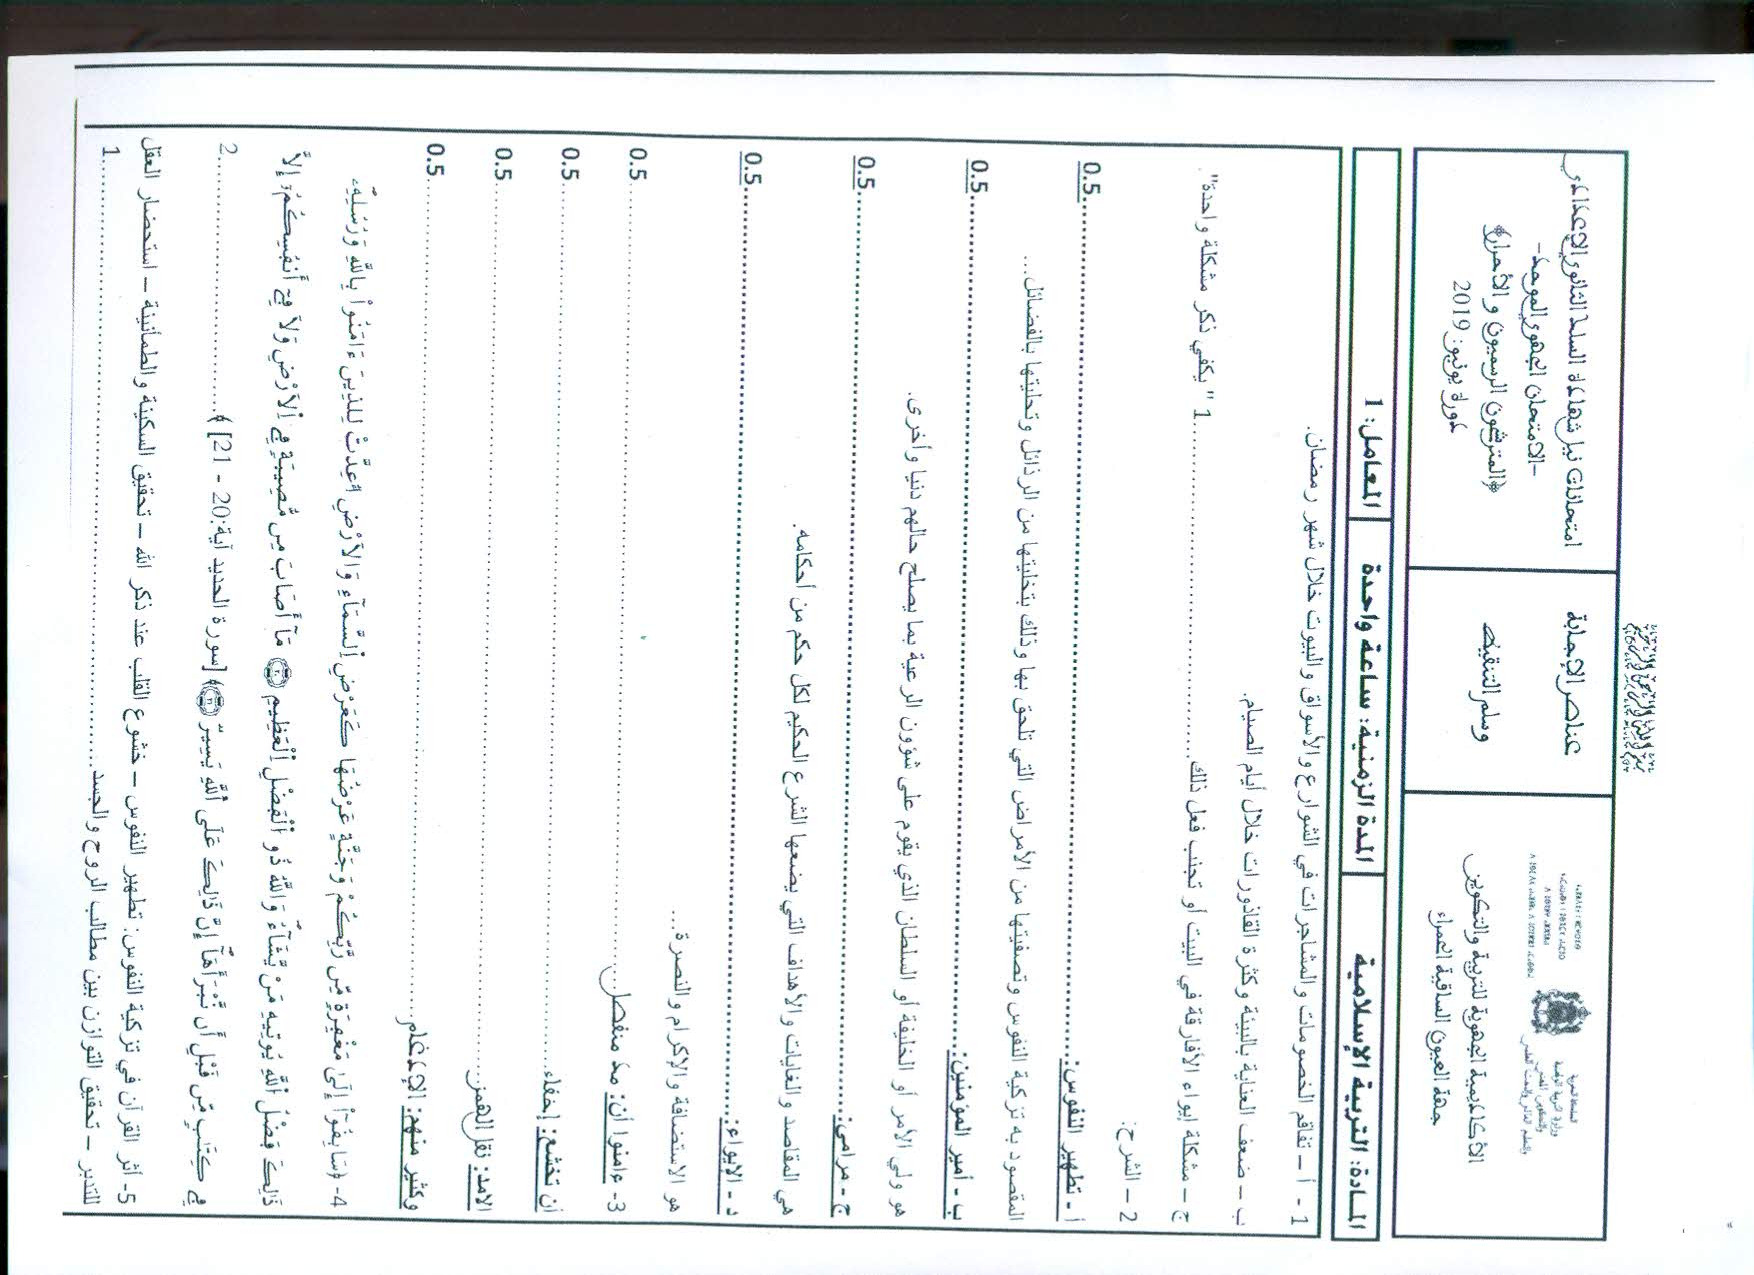 امتحانات نيل شهادة السلك الثانوي الإعدادي
-الامتحان الجهوي الموحد-
﴿المترشحون الرسميون والأحرار﴾
دورة يونيو: 2019
عناصر الإجابة
وسلم التنقيط
المملكة المغربية
وزارة التربية الوطنية
الأكاديمية الجهوية للتربية والتكوين
جهة العيون الساقية الحمراء
المادة: التربية الإسلامية
المدة الزمنية: ساعة واحدة
المعامل: 1
1 - أ – تفاقم الخصومات والمشاجرات في الشوارع والأسواق والبيوت خلال شهر رمضان.
ب – ضعف العناية بالبيئة وكثرة القاذورات خلال أيام الصيام.
ج – مشكلة إيواء الأفارقة في البيت أو تجنب فعل ذلك..........1 "يكفي ذكر مشكلة واحدة".
2 – الشرح:
أ - تطهير النفوس:..........0.5
المقصود به تزكية النفوس وتصفيتها من الأمراض التي تلحق بها وذلك بتخليتها من الرذائل وتحليتها بالفضائل...
ب - أمير المؤمنين:..........0.5
هو ولي الأمر أو الخليفة أو السلطان الذي يقوم على شؤون الرعية بما يصلح حالهم دنيا وأخرى.
ج - مرامي:..........0.5
هي المقاصد والغايات والأهداف التي يضعها الشرع الحكيم لكل حكم من أحكامه.
د - الايواء:..........0.5
هو الاستضافة والإكرام والنصرة...
3- ءامنوا أن: مد منفصل..........0.5
أن تخشع: إخفاء..........0.5
الامد: نقل الهمز..........0.5
وكثير منهم: الإدغام..........0.5
4- ﴿سَابِقُوٓاْ إِلَىٰ مَغْفِرَةٍ مِّن رَّبِّكُمْ وَجَنَّةٍ عَرْضُهَا كَعَرْضِ اِ۬لسَّمَآءِ وَالَارْضِ أُعِدَّتْ لِلذِينَ ءَامَنُواْ بِاللَّهِ وَرُسُلِهِۦ
ذَٰلِكَ فَضْلُ اُ۬للَّهِ يُوتِيهِ مَنْ يَّشَآءُ وَاللَّهُ ذُو اُ۬لْفَضْلِ اِ۬لْعَظِيمِ ۝ مَآ أَصَابَ مِن مُّصِيبَةٍ فِے اِ۬لَارْضِ وَلَا فِےٓ أَنفُسِكُمُۥٓ إِلَّا
فِے كِتَٰبٍ مِّن قَبْلِ أَن نَّبْرَأَهَآ إِنَّ ذَٰلِكَ عَلَى اَ۬للَّهِ يَسِيرٌ ۝﴾ [سورة الحديد آية:20 - 21] ﴾..........2
5- أثر القرآن في تزكية النفوس: تطهير النفوس – خشوع القلب عند ذكر الله – تحقيق السكينة والطمأنينة – استحضار العقل
للتدبر – تحقيق التوازن بين مطالب الروح والجسد..........1